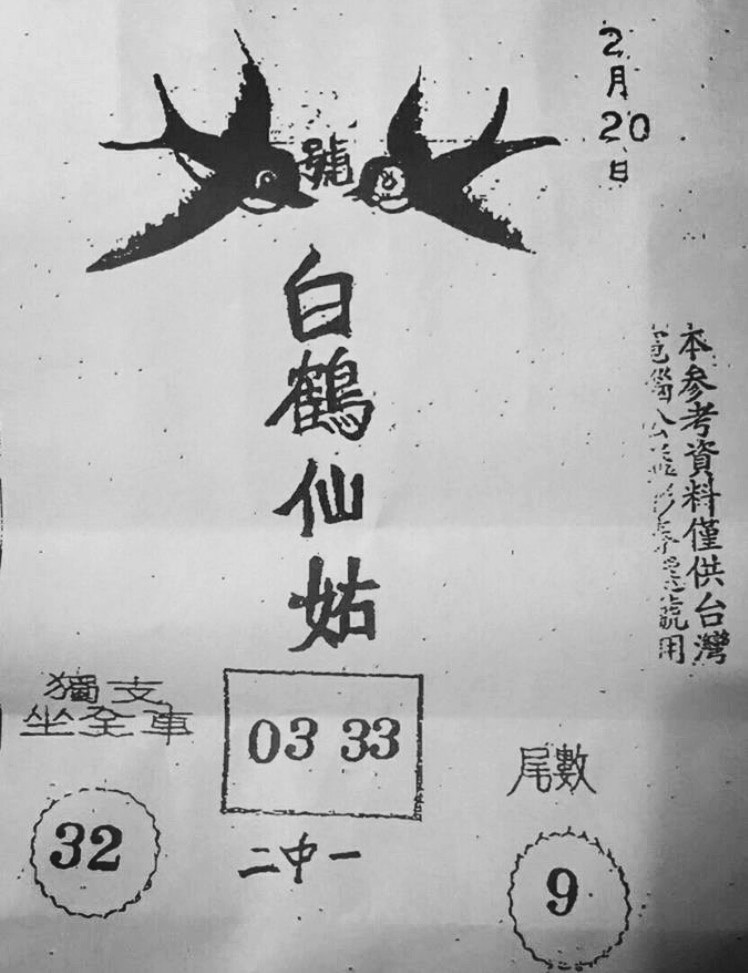 2月20日
號
白鶴仙姑
本参考資料僅供台灣
號用
獨支
坐全車
32
03 33
二中一
尾數
9